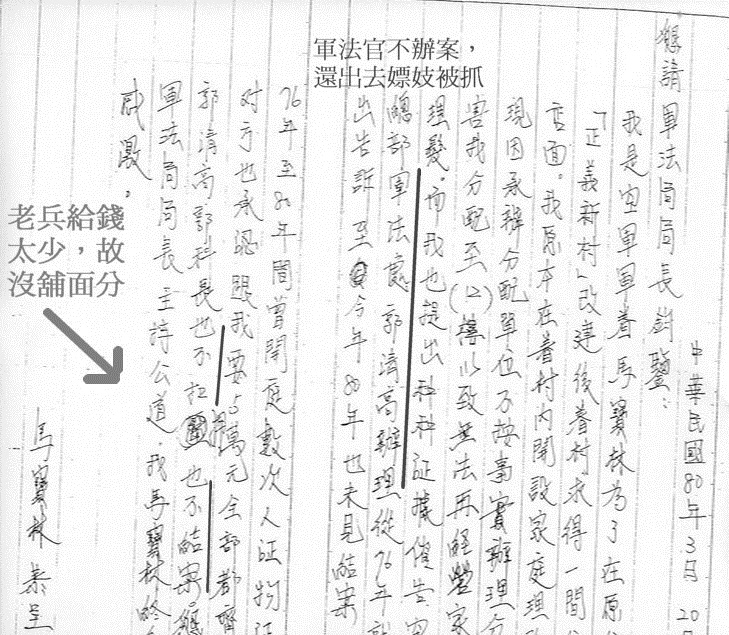 軍法官不辦案，
還出去嫖妓被抓
老兵給錢
太少，故
沒舖面分
中華民國80年3月20
懇請軍法局局長鈞鑒：
我是空軍軍眷馬寶林為了在原
「正義新村」改建後眷村求得一間
店面。我原本在眷村內開設家庭理
現因承辦分配單位不按事實辦理分
害我分配至(12)樓以致無法再經營家
理髮．而我也提出種種証據催告
總部軍法處郭清高辦理從76年
出告訴至今年80年也未見結案
76年至80年間曾開庭數次人証物証
对方也承認跟我要5萬元全部都齊
郭清高郭科長也不也不結案懇
軍法局局長主持公道．我馬寶林終
感激。
馬寶林恭呈